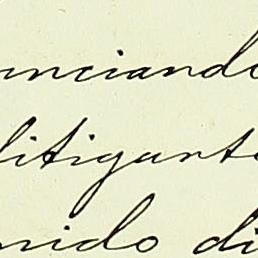 unciando
litigante
nido di